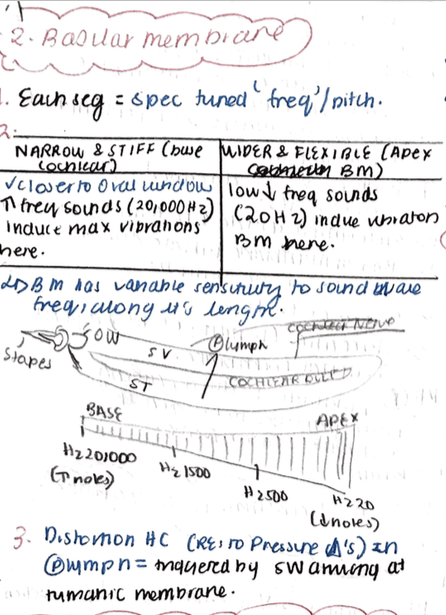 2. Basilar membrane
1. Each seg = spec tuned 'freq'/pitch.
2.
NARROW & STIFF (base cochlear)
WIDER & FLEXIBLE (APEX BM)
✓closer to Oval window
↑ freq sounds (20,000Hz)
induce max vibrations
here.
low↓ freq sounds
(20Hz) indue
BM here.
↳ BM has variable sensitivity to sound wave
freq along it's length.
Stapes
OW
SV
ST
Ⓟlymph
COCHLEAR Nerve
COCHLEAR DUCT
BASE
APEX
Hz 20,000
(↑notes)
Hz 1500
Hz 500
Hz 20
(↓notes)
3. Distortion HC (RES to Pressure Δ's) in
Ⓟlymph = triggered by SW arriving at
tympanic membrane.